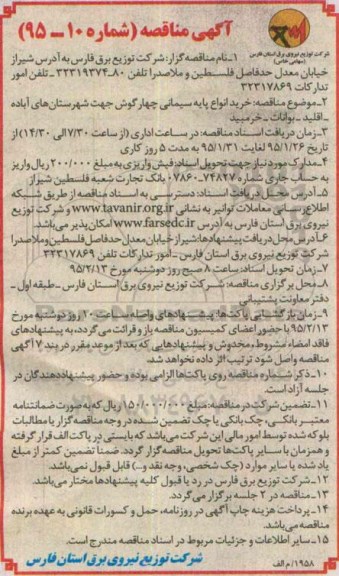 شرکت توزیع نیروی برق استان فارس
(سهامی خاص)
آگهی مناقصه (شماره ۱۰ – ۹۵)
۱-نام مناقصه گزار: شرکت توزیع برق فارس به آدرس شیراز
خیابان معدل حدفاصل فلسطین و ملاصدرا تلفن ۸۰-۳۲۳۱۹۳۷۴ ـ تلفن امور
تدارکات ۳۲۳۱۷۸۶۹
۲-موضوع مناقصه: خرید انواع پایه سیمانی چهارگوش جهت شهرستان‌های آباده
ـ اقلید ـ بوانات ـ خرمبید
۳-زمان دریافت اسناد مناقصه: در ساعات اداری (از ساعت ۷/۳۰ الی ۱۴/۳۰) از
تاریخ ۹۵/۱/۲۶ لغایت ۹۵/۱/۳۱ به مدت ۵ روز کاری
۴-مدارک مورد نیاز جهت تحویل اسناد: فیش واریزی به مبلغ ۲۰۰/۰۰۰ ریال واریز
به حساب جاری شماره ۷۴۸۲۷-۰۷۸۶۰ بانک تجارت شعبه فلسطین شیراز
۵-آدرس محل دریافت اسناد: دسترسی به اسناد مناقصه از طریق شبکه
اطلاع رسانی معاملات توانیر به نشانی www.tavanir.org.ir و شرکت توزیع
نیروی برق استان فارس به آدرس www.farsedc.ir امکان پذیر می‌باشد.
۶-آدرس محل دریافت پیشنهادها: شیراز خیابان معدل حدفاصل فلسطین و ملاصدرا
شرکت توزیع نیروی برق استان فارس ـ امور تدارکات تلفن ۳۲۳۱۷۸۶۹
۷-زمان تحویل اسناد: ساعت ۸ صبح روز دوشنبه مورخ ۹۵/۲/۱۳
۸-محل برگزاری مناقصه: شرکت توزیع نیروی برق استان فارس ـ طبقه اول ـ
دفتر معاونت پشتیبانی
۹-زمان بازگشائی پاکت‌ها: پیشنهادهای واصله ساعت ۱۰ روز دوشنبه مورخ
۹۵/۲/۱۳ با حضور اعضای کمیسیون مناقصه باز و قرائت می‌گردد، به پیشنهادهای
فاقد امضاء مشروط، مخدوش و پیشنهادهایی که بعد از موعد مقرر در بند ۷ آگهی
مناقصه واصل شود ترتیب اثر داده نخواهد شد.
۱۰-ذکر شماره مناقصه روی پاکت‌ها الزامی بوده و حضور پیشنهاددهندگان در
جلسه آزاد است.
۱۱-تضمین شرکت در مناقصه: مبلغ ۱۵۰/۰۰۰/۰۰۰ ریال که به صورت ضمانتنامه
معتبر بانکی، چک بانکی یا چک تضمین شده در وجه مناقصه گزار یا مطالبات
بلوکه شده توسط امور مالی این شرکت می‌باشد که بایستی در پاکت الف قرار گرفته
و همزمان با سایر پاکت‌ها تحویل مناقصه گزار گردد. ضمناً تضمین کمتر از مبلغ
یاد شده یا سایر موارد (چک شخصی، وجه نقد و..) قابل قبول نمی‌باشد.
۱۲-شرکت توزیع برق فارس در رد یا قبول کلیه پیشنهادها مختار می‌باشد.
۱۳-مناقصه در ۲ جلسه برگزار می‌گردد.
۱۴-پرداخت هزینه چاپ آگهی در روزنامه، حمل و کسورات قانونی به عهده برنده
مناقصه می‌باشد.
۱۵-سایر اطلاعات و جزئیات مربوط در اسناد مناقصه مندرج است.
۱۹۵۸/م الف
شرکت توزیع نیروی برق استان فارس